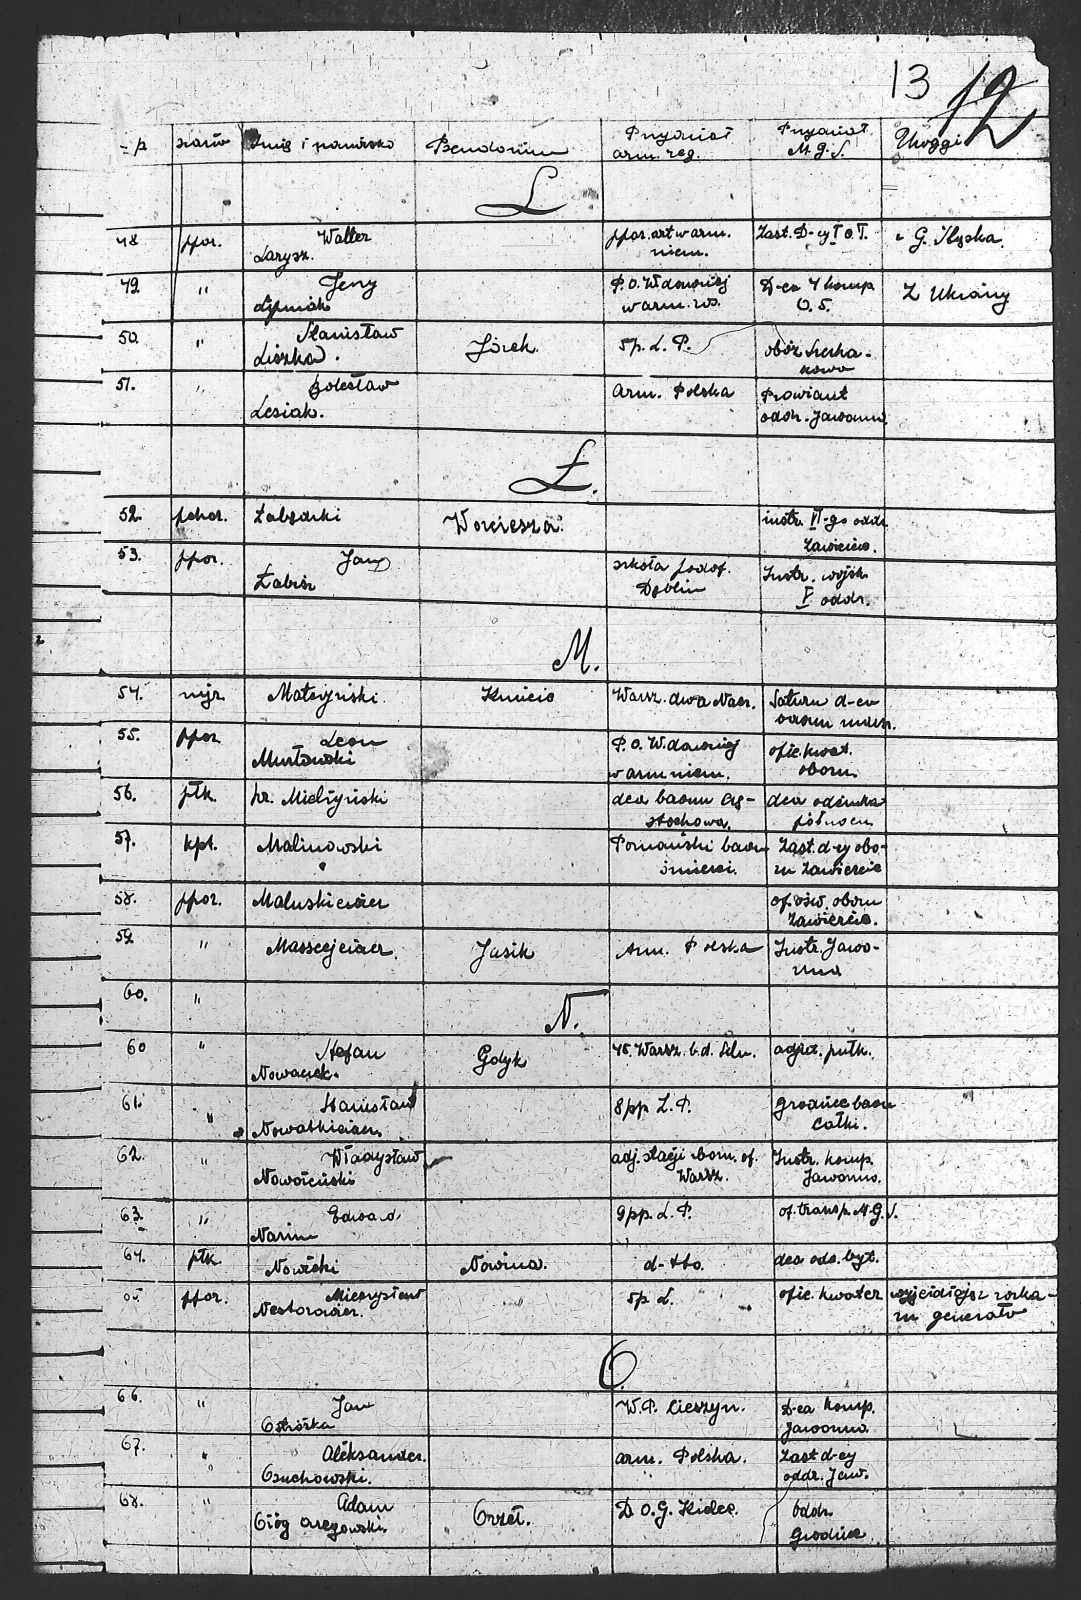 13 12
L.p. stano Imię i nazwisko Pseudonim Przydział arm. reg. Przydział M.G.S. Uwagi
L
48 ppor. Walter Larysz. ppor. art w arm. niem. Zast. D-cy I O.T. z G. Śląska.
49 " Jerzy Lipniak P.O.W. dawniej w arm. ros. D-ca 4 komp O.S. Z Ukrainy
50. " Stanisław Liszka. Jórek 5 p. L. P. obóz
51. " Bolesław Lesiak. arm. Polska Prowiant oddz. Jaworzno
Ł.
52. pchor. Łabędzki instr. VI-go oddz. Zawiercie.
53. ppor. Jan Łabuz szkoła podof. Dęblin Instr. wojsk. V oddz.
M.
54. mjr. Matczyński Kmicic Warsz. d-wa Nacz. Saturn d-ca
55. ppor. Leon P.O.W. dawniej w arm niem. ofic. kwat. obozu
56. płk. hr. Mielżyński dca baonu Częstochowa. dca odcinka północn
57. kpt. Malinowski Poznański baon śmierci. Zast. d-cy obozu Zawiercie
58. ppor. Maluskiewicz of. ośw. obozu Zawiercie.
59 " Jasik Arm. Polska Instr. Jaworzna
60. "
N.
60 " Stefan Nowaczek. Gdyk 45. Warsz. adjut. pułk.
61. " Stanisław Nowatkiewicz 8 pp L. P. Grodziec baon Całki.
62. " Władysław adj. stacji zborn. of. Warsz. Instr. komp. Jaworzno.
63. " Edward Narim 9 pp. L. P. of. transp. M.G.S.
64. płk Nowicki Nowina. d-tto. dca odc. byt.
ppor. Mieczysław Nestorowicz. 5 p L. ofic. kwater wyjechał z rozkazu generała
O.
66. " Jan Ostrózka W.P. Cieszyn. D-ca komp. Jaworzno.
67. " Aleksander Osuchowski. arm. Polska. Zast d-cy oddz. Jaw.
68. " Adam Orzeł. D.O.G. Kielce. Oddz. Grodziec